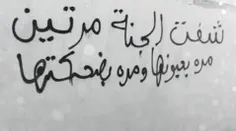 شفت الجنة مرتين
مره بعيونها ومره بضحكتها